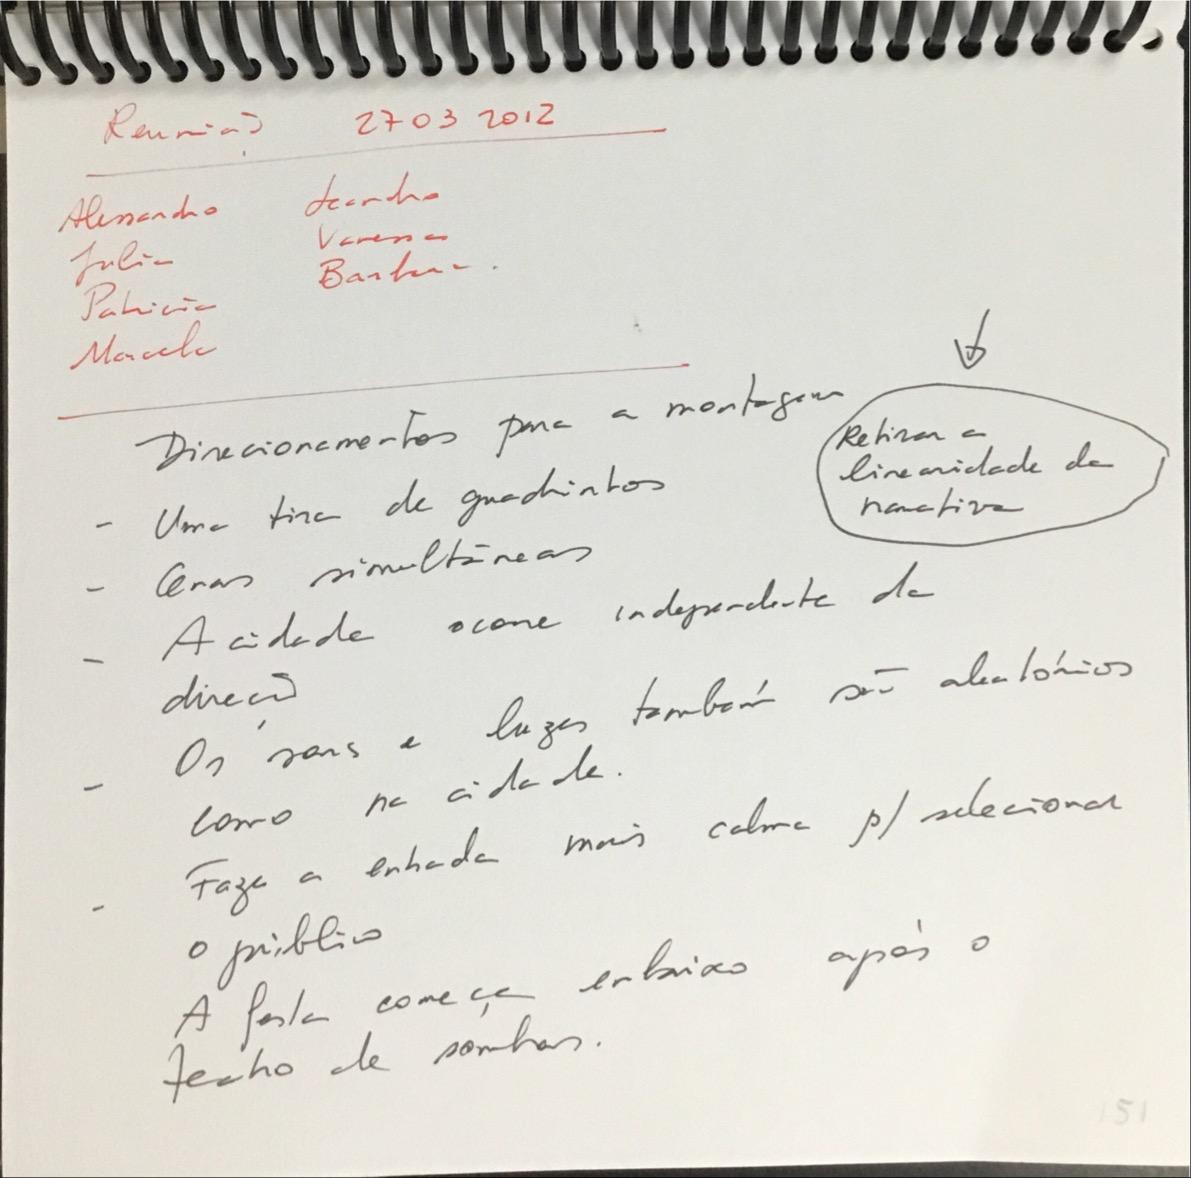 Reunião 27 03 2012
Alessandro Leandro
Julia Vanessa
Patricia Barbara.
Marcelo
Direcionamentos para a montagem
Retirar a
linearidade da
narrativa
- Uma tira de quadrinhos
- Cenas simultâneas
- A cidade ocorre independente da
direção
- Os sons e luzes também são aleatórios
como na cidade.
- Fazer a entrada mais calma p/ selecionar
o público
A festa começa embaixo após o
de sombras.
51